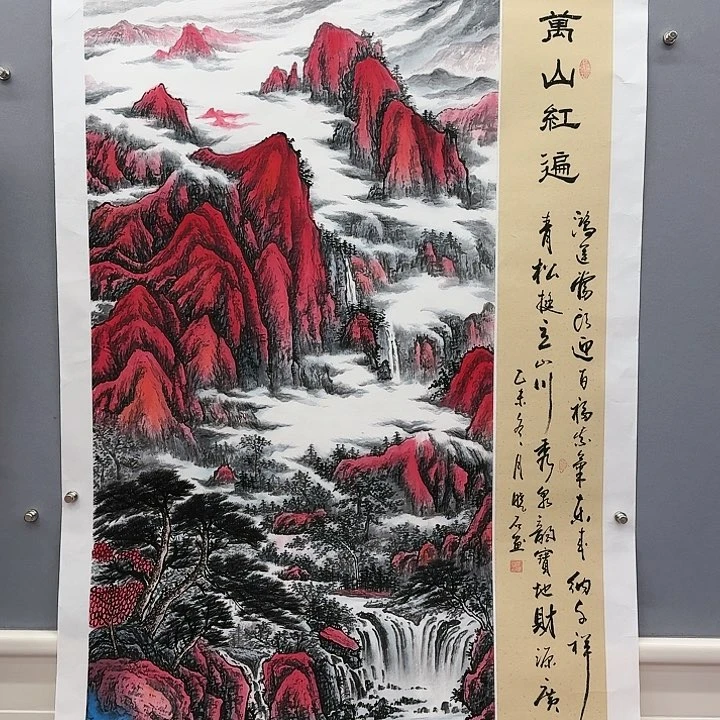 萬山紅遍
鴻運當頭迎百福紫氣東來納千祥
青松挺立山川秀泉韻寶地財源廣
乙未冬月曉石画